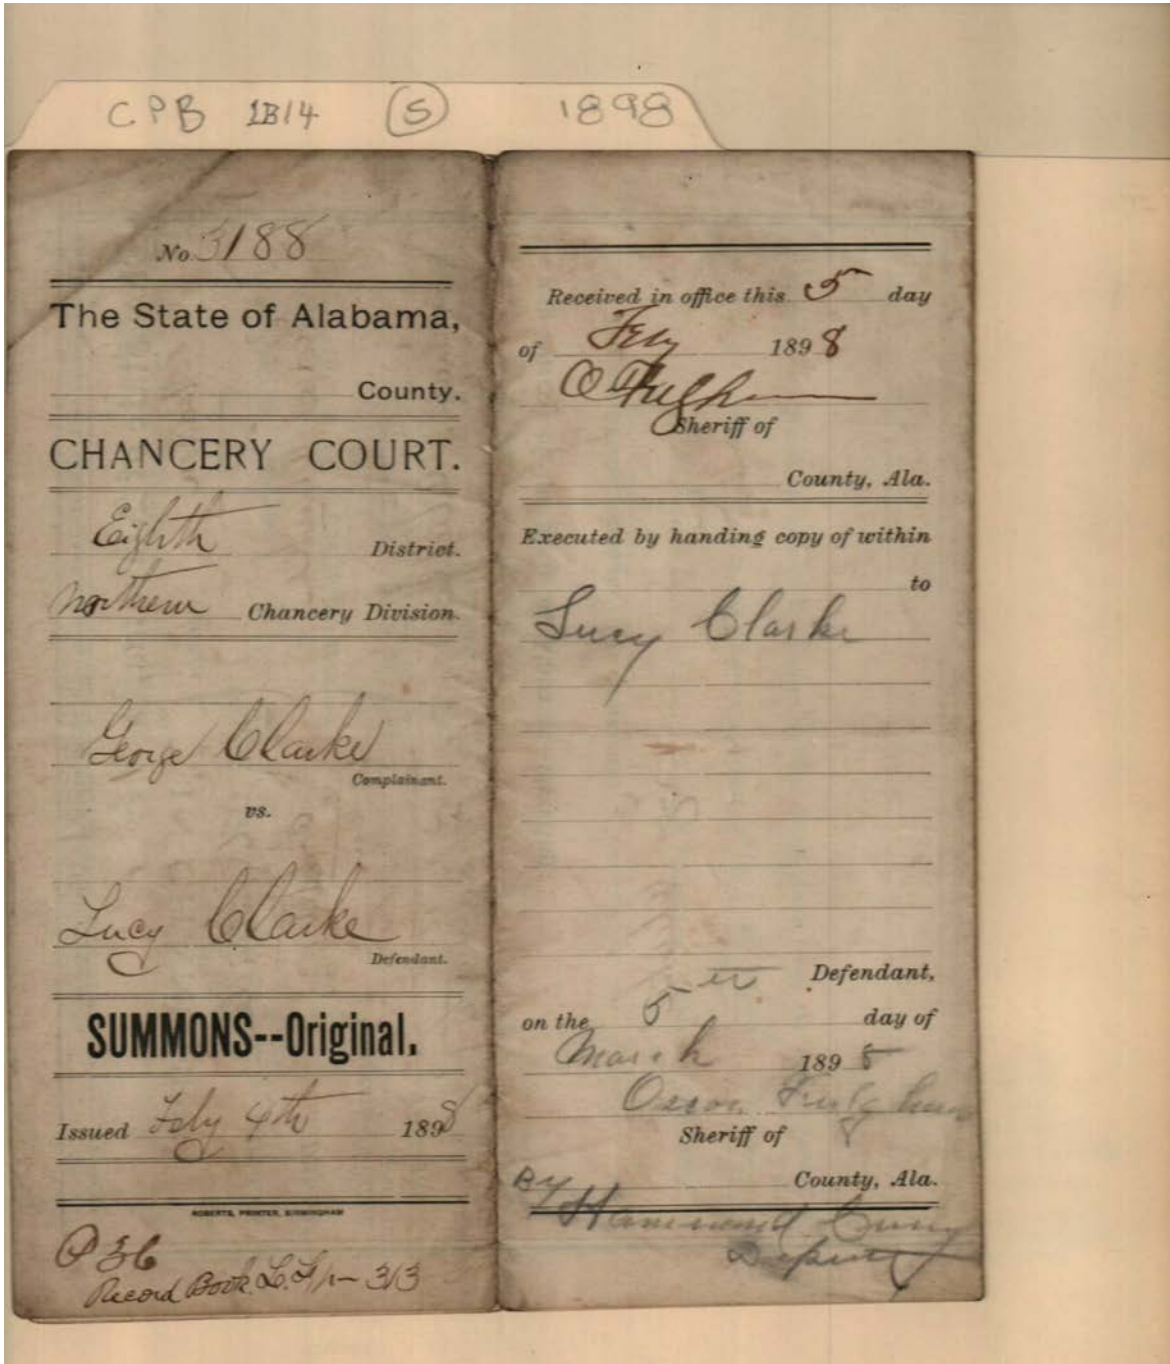 CPB 1B14 (S) 1898
No 3188
The State of Alabama,
County.
CHANCERY COURT.
Eighth District.
Northern Chancery Division.
George Clarke
Complainant.
vs.
Lucy Clarke
Defendant.
SUMMONS--Original.
Issued Feby 4th 1898
ROBERTS, PRINTER, BIRMINGHAM
P 36
Record Book 313
Received in office this 5 day
of Feby 1898
Sheriff of
County, Ala.
Executed by handing copy of within
to
Lucy Clarke
Defendant,
on the 5 day of
March 189
Sheriff of
By County, Ala.
Hammond
Deputy